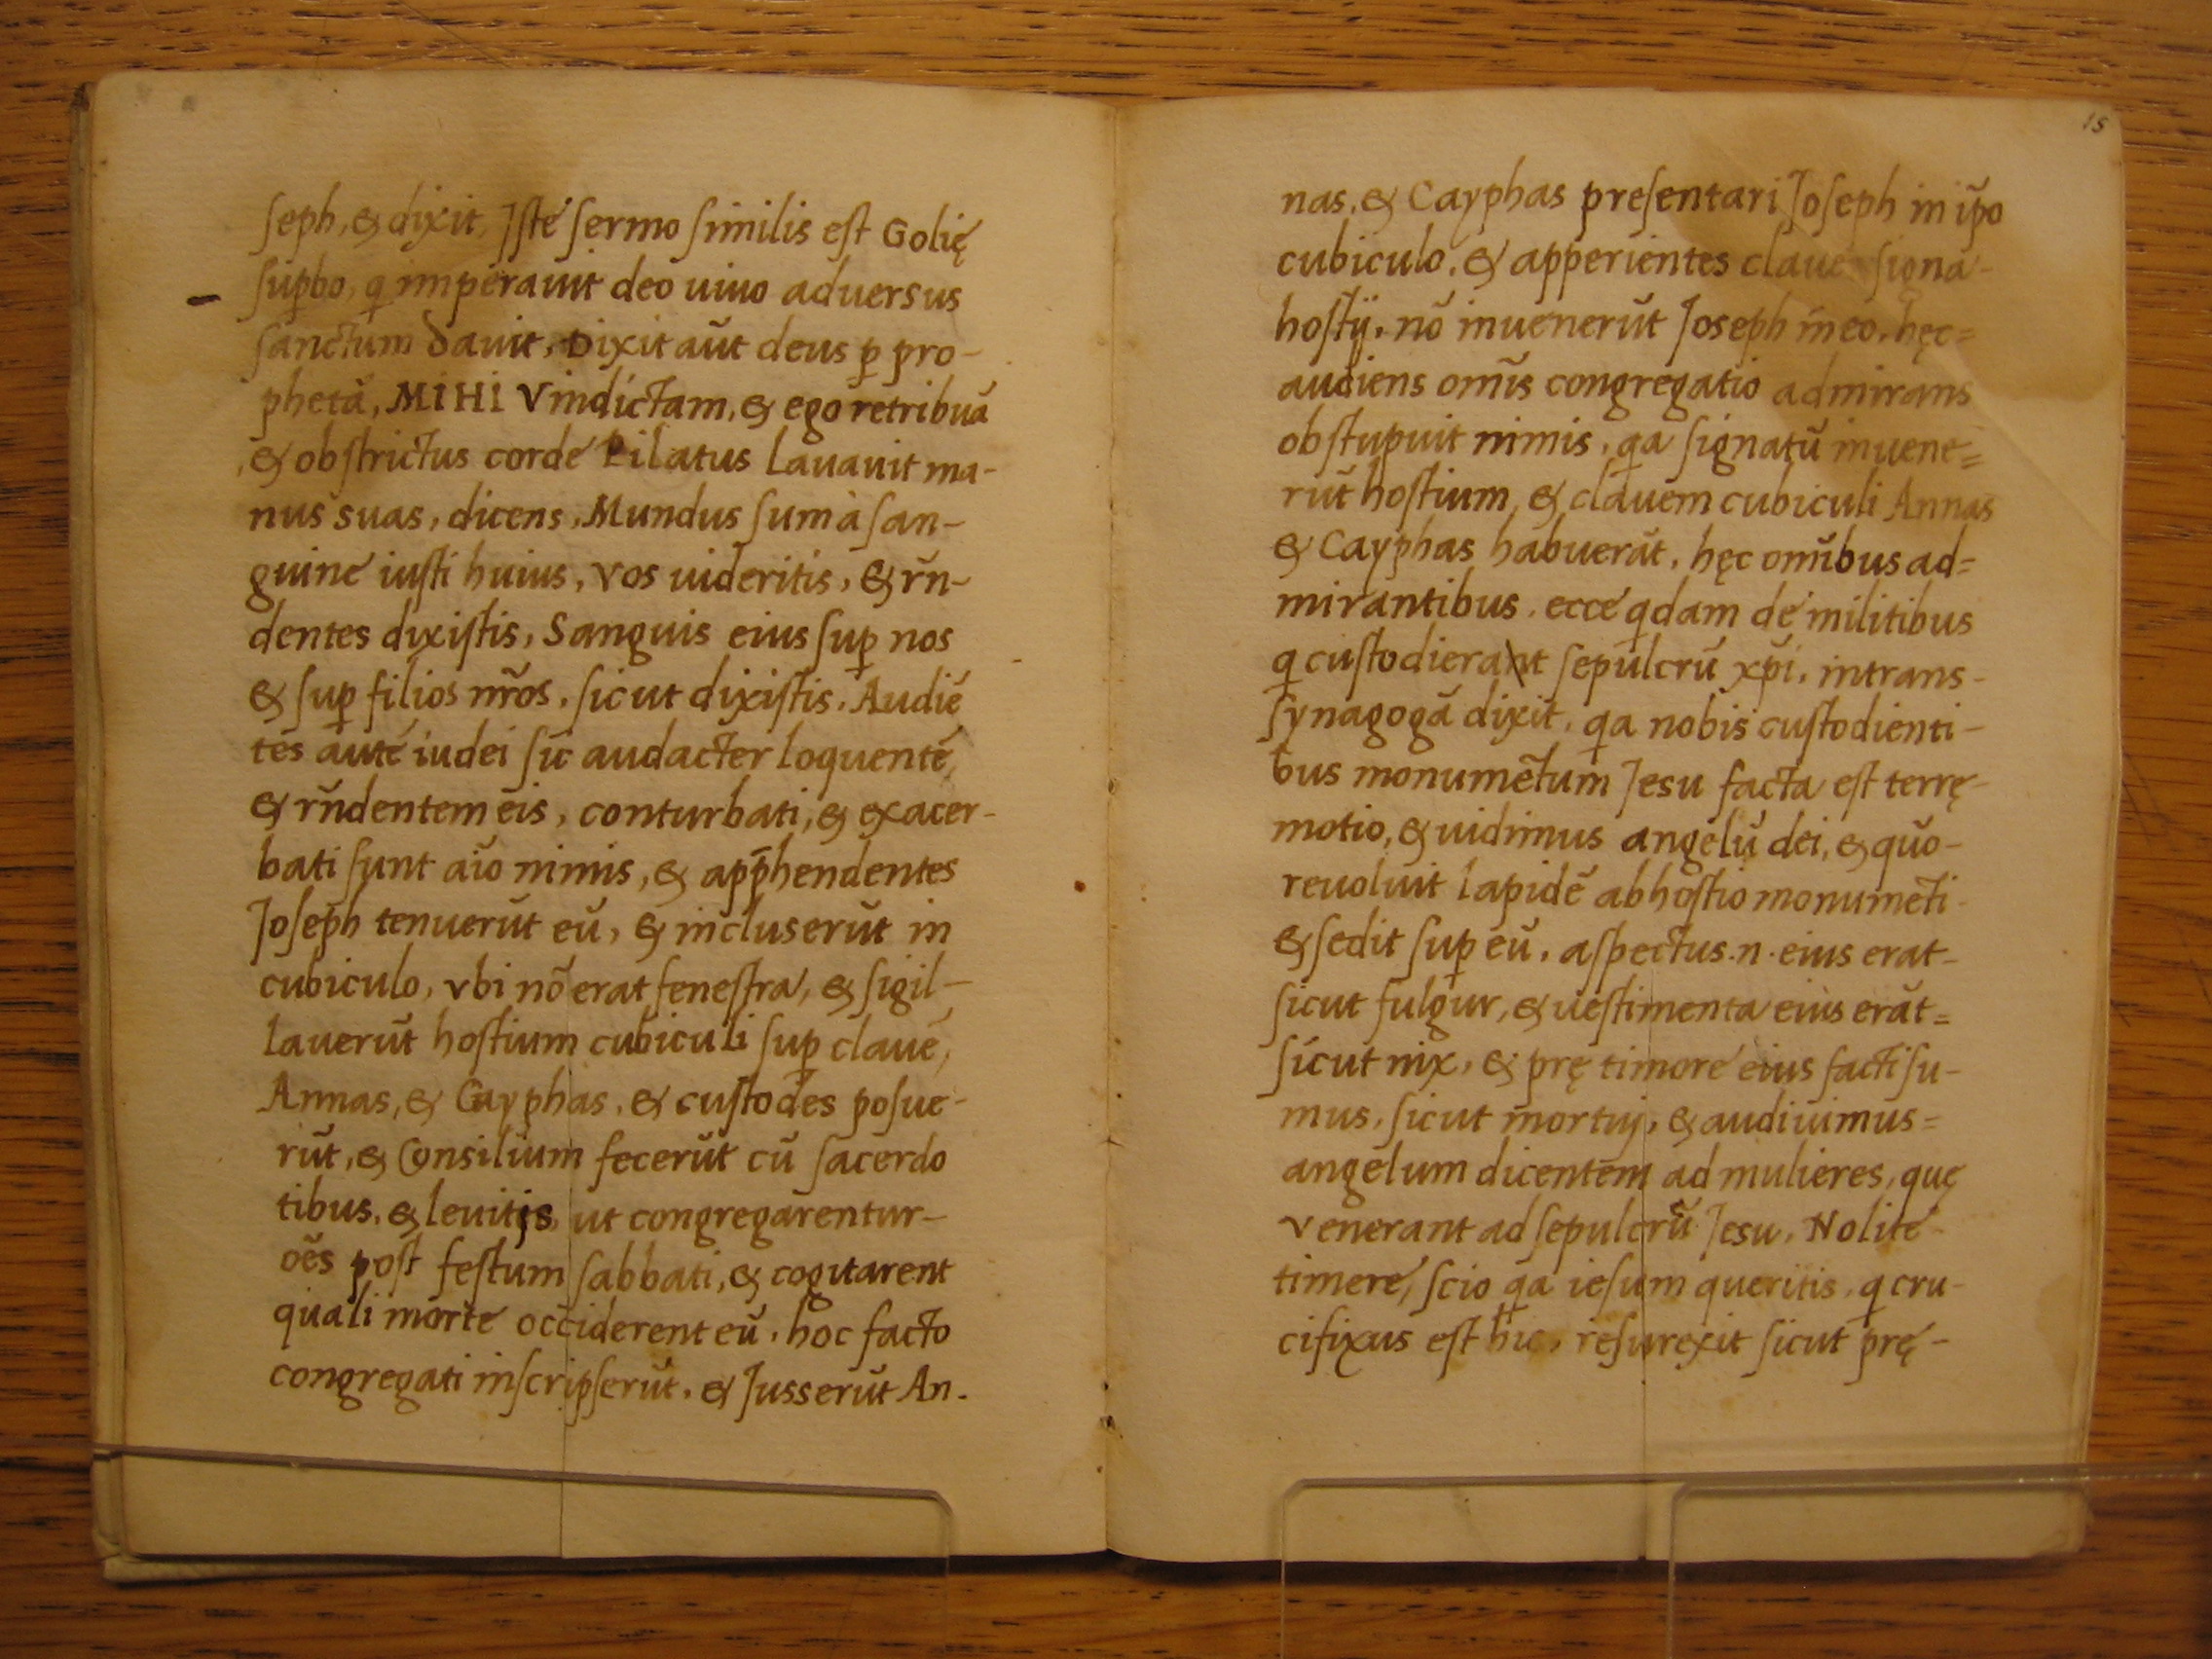 seph, & dixit, Iste sermo similis est Golię
suꝑbo, q imperauit deo uiuo aduersus
sanctum dauit, Dixit aūt deus ꝑ pro-
phetā, MIHI Vindictam, & ego retribuā
, & obstrictus corde Pilatus lauauit ma-
nus suas, dicens, Mundus sum à san-
guine iusti huius, vos uideritis, & rn̄-
dentes dixistis, Sanguis eius suꝑ nos
& suꝑ filios nr̄os, sicut dixistis. Audiē
tes autē iudei sic audacter loquentē,
& rn̄dentem eis, conturbati, & exacer-
bati sunt aīo nimis, & app̄hendentes
Joseph tenuerūt eū, & incluserūt in
cubiculo, vbi nō erat fenestra, & sigil-
lauerūt hostium cubiculi suꝑ clauē,
Annas, & Cayphas, & custodes posue-
rūt, & Consilium fecerūt cū sacerdo
tibus, & leuitis, ut congregarentur-
oēs post festum sabbati, & cogitarent
quali morte occiderent eū, hoc facto
congregati inscripserūt, & Jusserūt An-
15
nas, & Cayphas presentari Joseph in ip̄o
cubiculo, & apperientes signa-
hostij, nō inuenerūt Joseph in eo, hęc=
audiens om̄is congregatio admirans
obstupuit nimis, qa signatū inuene=
rūt hostium, & clauem cubiculi Annas
& Cayphas habuerāt, hęc om̄ibus ad=
mirantibus, ecce qdam de militibus
q custodierant sepulcrū xp̄i, intrans-
synagogā dixit, qa nobis custodienti-
bus monumētum Jesu facta est terrę-
motio, & uidimus angelū dei, & quō-
reuoluit lapidē ab hostio monumēti-
& sedit suꝑ eū, aspectus .n. eius erat-
sicut fulgur, & uestimenta eius erāt=
sicut nix, & prę timore eius facti su-
mus, sicut mortuj, & audiuimus=
angelum dicentem ad mulieres, quę
venerant ad sepulcrū Jesu, Nolite-
timere, scio qa iesum queritis, q cru-
cifixus est hic, resurexit sicut prę-